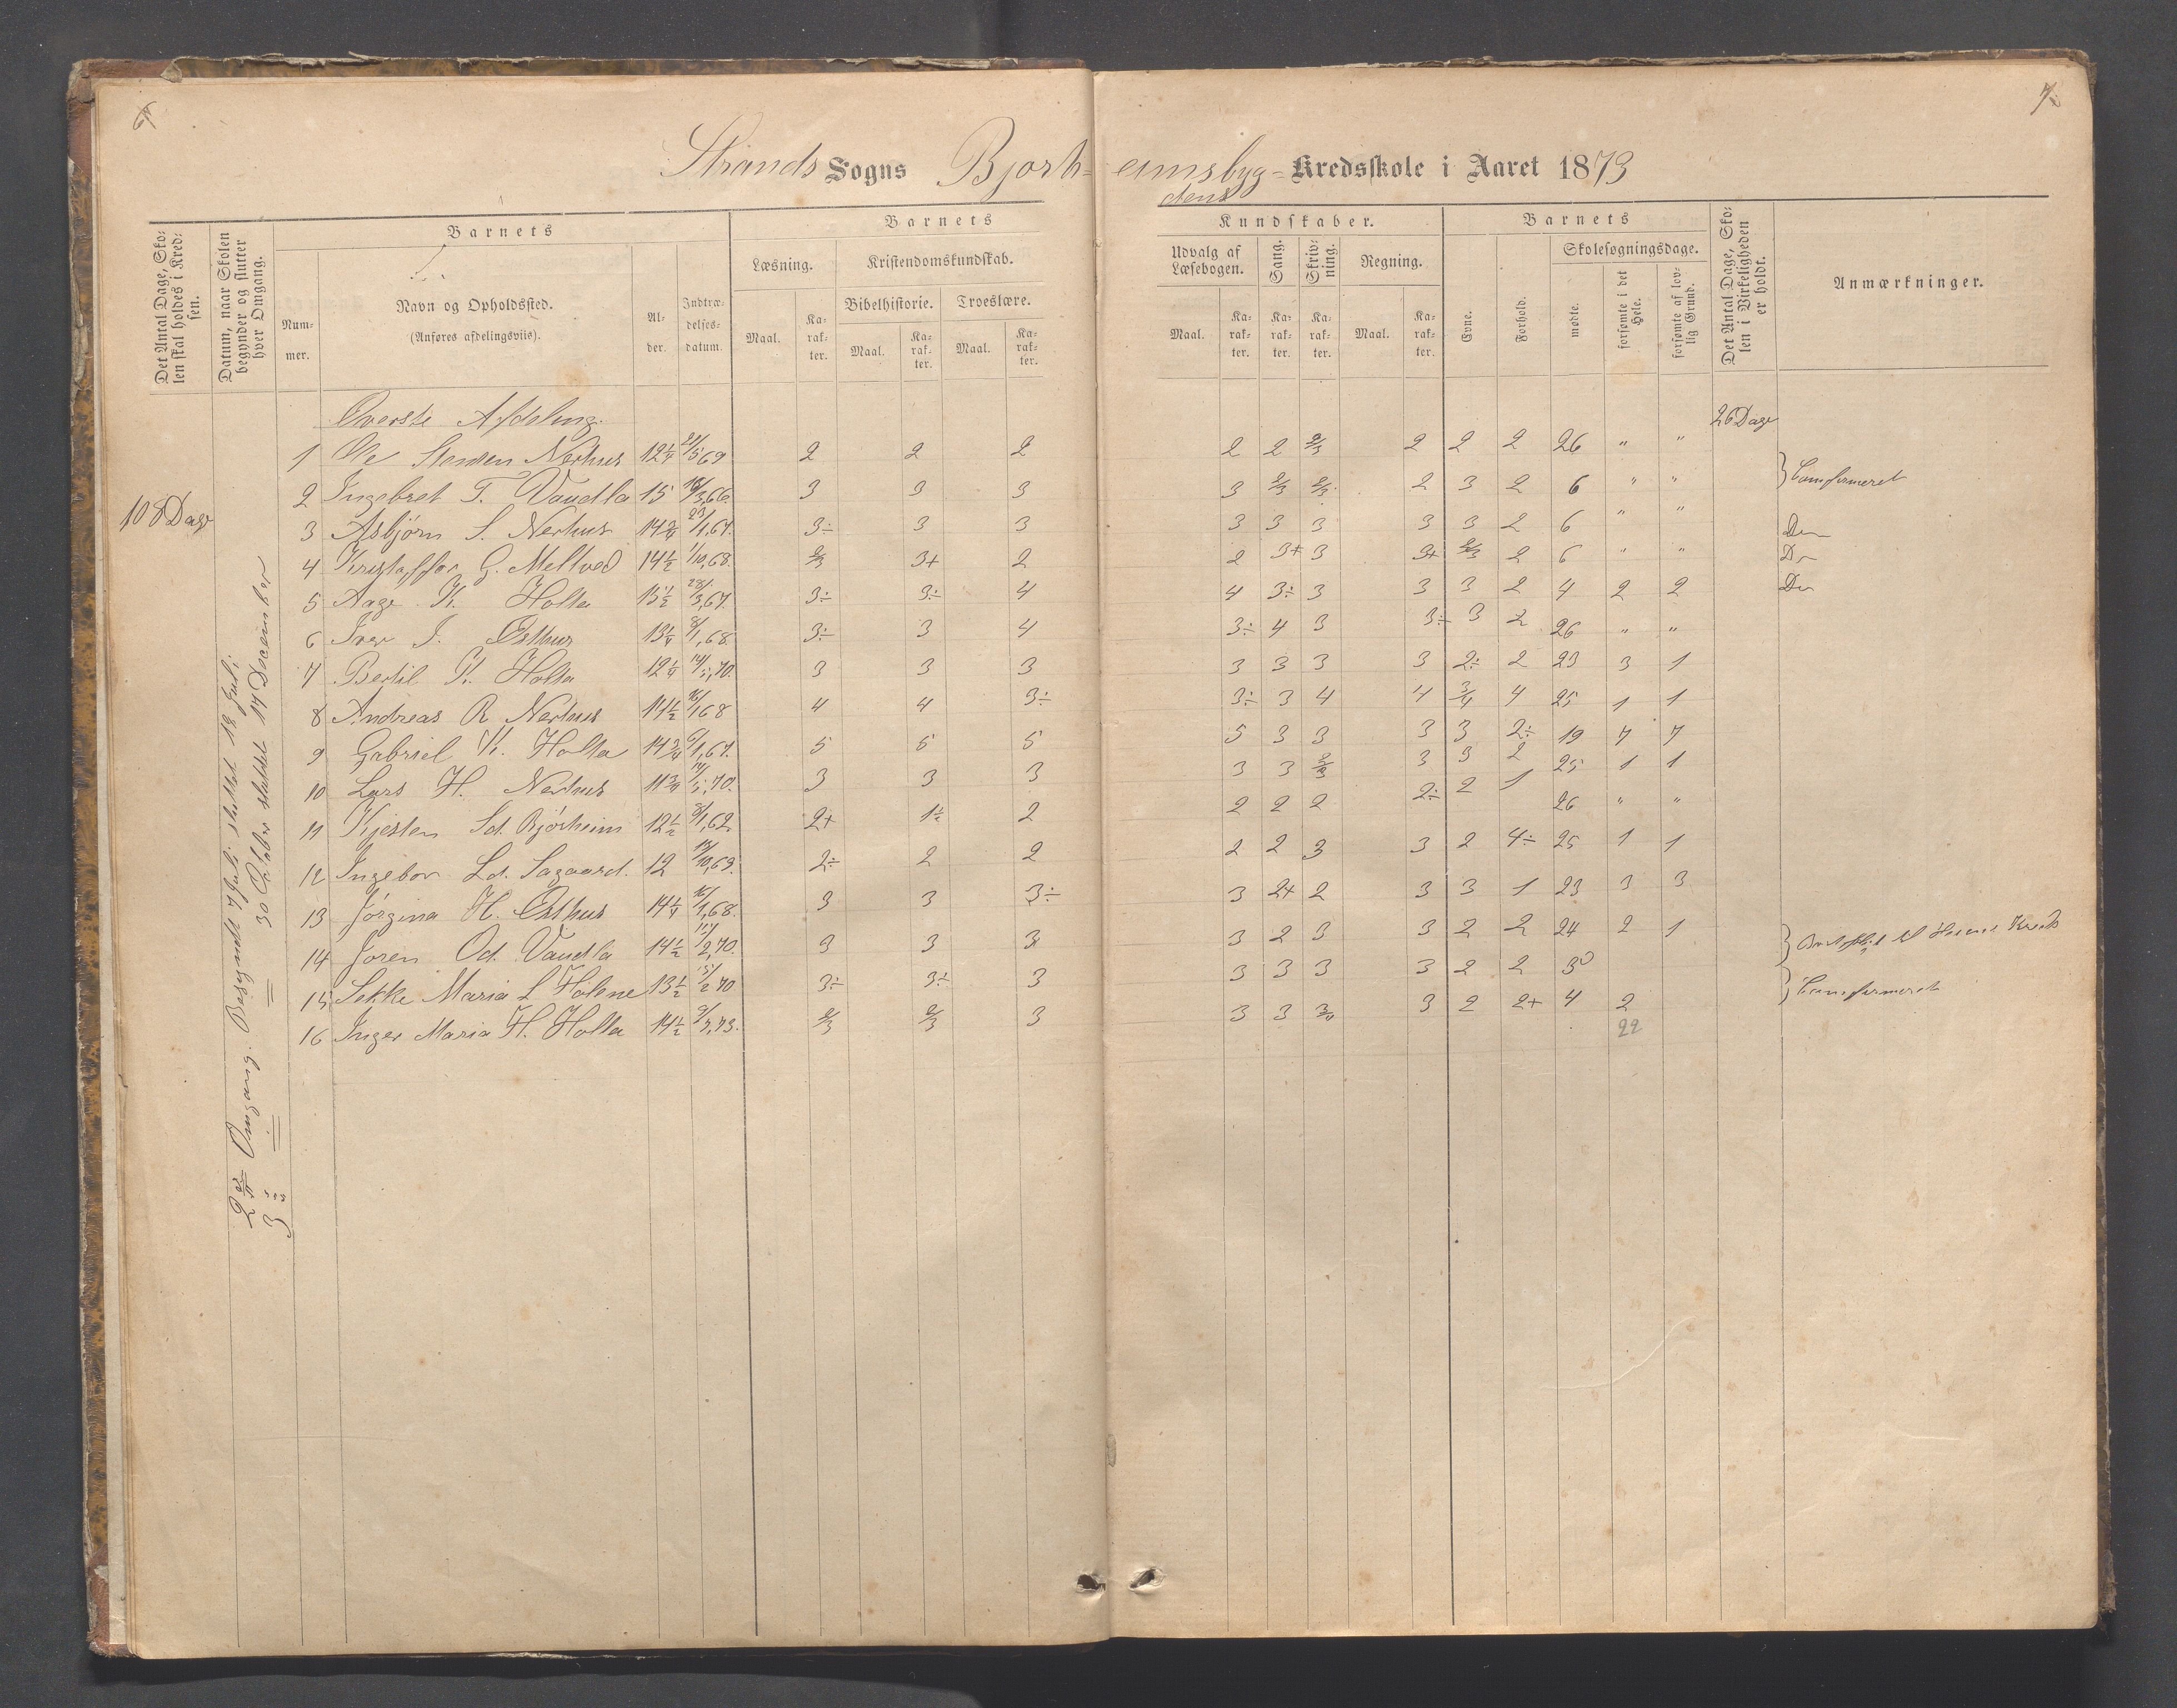 6
7
Strands Sogns Bjorh-
eimsbyg- Kredsskole i Aaret 1873
dens
Det Antal Dage, Skolen skal holdes i Kredsen.
Datum, naar Skolen begynder og slutter hver Omgang.
Barnets
Nummer.
Navn og Opholdssted.
(Anføres afdelingsviis).
Alder.
Indtrædelsesdatum.
Barnets
Læsning.
Kristendomskundskab.
Bibelhistorie.
Troeslære.
Maal.
Karakter.
Maal.
Karakter.
Maal.
Karakter.
Kundskaber.
Udvalg af Læsebogen.
Sang.
Skrivning.
Regning.
Maal.
Karakter.
Karakter.
Karakter.
Maal.
Karakter.
Barnets
Evne.
Forhold.
Skolesøgningsdage.
mødte.
forsømte i det Hele.
forsømte af lovlig Grund.
Det Antal Dage, Skolen i Virkeligheden er holdt.
Anmærkninger.
108 Dage
2 Omgang. Begyndt 7 Juli sluttet 18 Juli
3 = = 30 October sluttet 17 December
Øverste Afdeling. 26 Dage
1 Ole Nerhus 12 1/4 2 2 2 2 2 2/3 2 2 2 26 " "
2 Ingebret T. Vaudla 15 3 3 3 3 2/3 2/3 2 3 2 6 " " Comfirmeret
3 Asbjørn S. Nerhus 14 3/4 3÷ 3 3 3 3 3 3 3 2 6 " "
4 Kristoffer G. Meltved 14 1/2 1/10,68. 2/3 3+ 2 2 3+ 3 3+ 2/3 2 6 " "
5 Aage K. Holta 15 1/2 28/3,67. 3÷ 3÷ 4 4 3÷ 3 3 3 2 4 2 2
6 Iver I. Østhus 13 1/4 8/1,68 3÷ 3 4 3÷ 4 3 3÷ 3 2 26 " "
7 Bertil K. Holta 12 1/4 3 3 3 3 3 3 3 2÷ 2 23 3 1
8 Andreas R Nerhus 14 1/2 16/1 68 4 4 3÷ 3÷ 3 4 4 3/4 4 25 1 1
9 Gabriel K. Holta 14 3/4 5 5 5 5 3 3 3 3 2÷ 19 7 7
10 Lars H. Nerhus 11 3/4 3 3 3 3 3 2/3 3 3 2 25 1 1
11 Kjesten Sd. Bjørheim 12 1/2 8/1,62 2+ 1 1/2 2 2 2 2 2÷ 2 1 26 " "
12 Ingebor Ld. Sagaard. 12 2÷ 2 2 2 2 3 3 2 4÷ 25 1 1
13 Jørgina H. Østhus 14 1/4 16/1,68. 3 3 3÷ 3 2+ 2 3 3 1 23 3 3
14 Joren Od. Vaudla 14 1/2 3 3 3 3 2 3 3 2 2 24 2 1
15 Sekke Maria L Holene 13 1/2 3÷ 3÷ 3 3 3 3 3 2 2 3
16 Inger Maria H. Holta 14 1/2 2/3 2/3 3 3 3 3 2 2+ 4 2 Comfirmeret
22